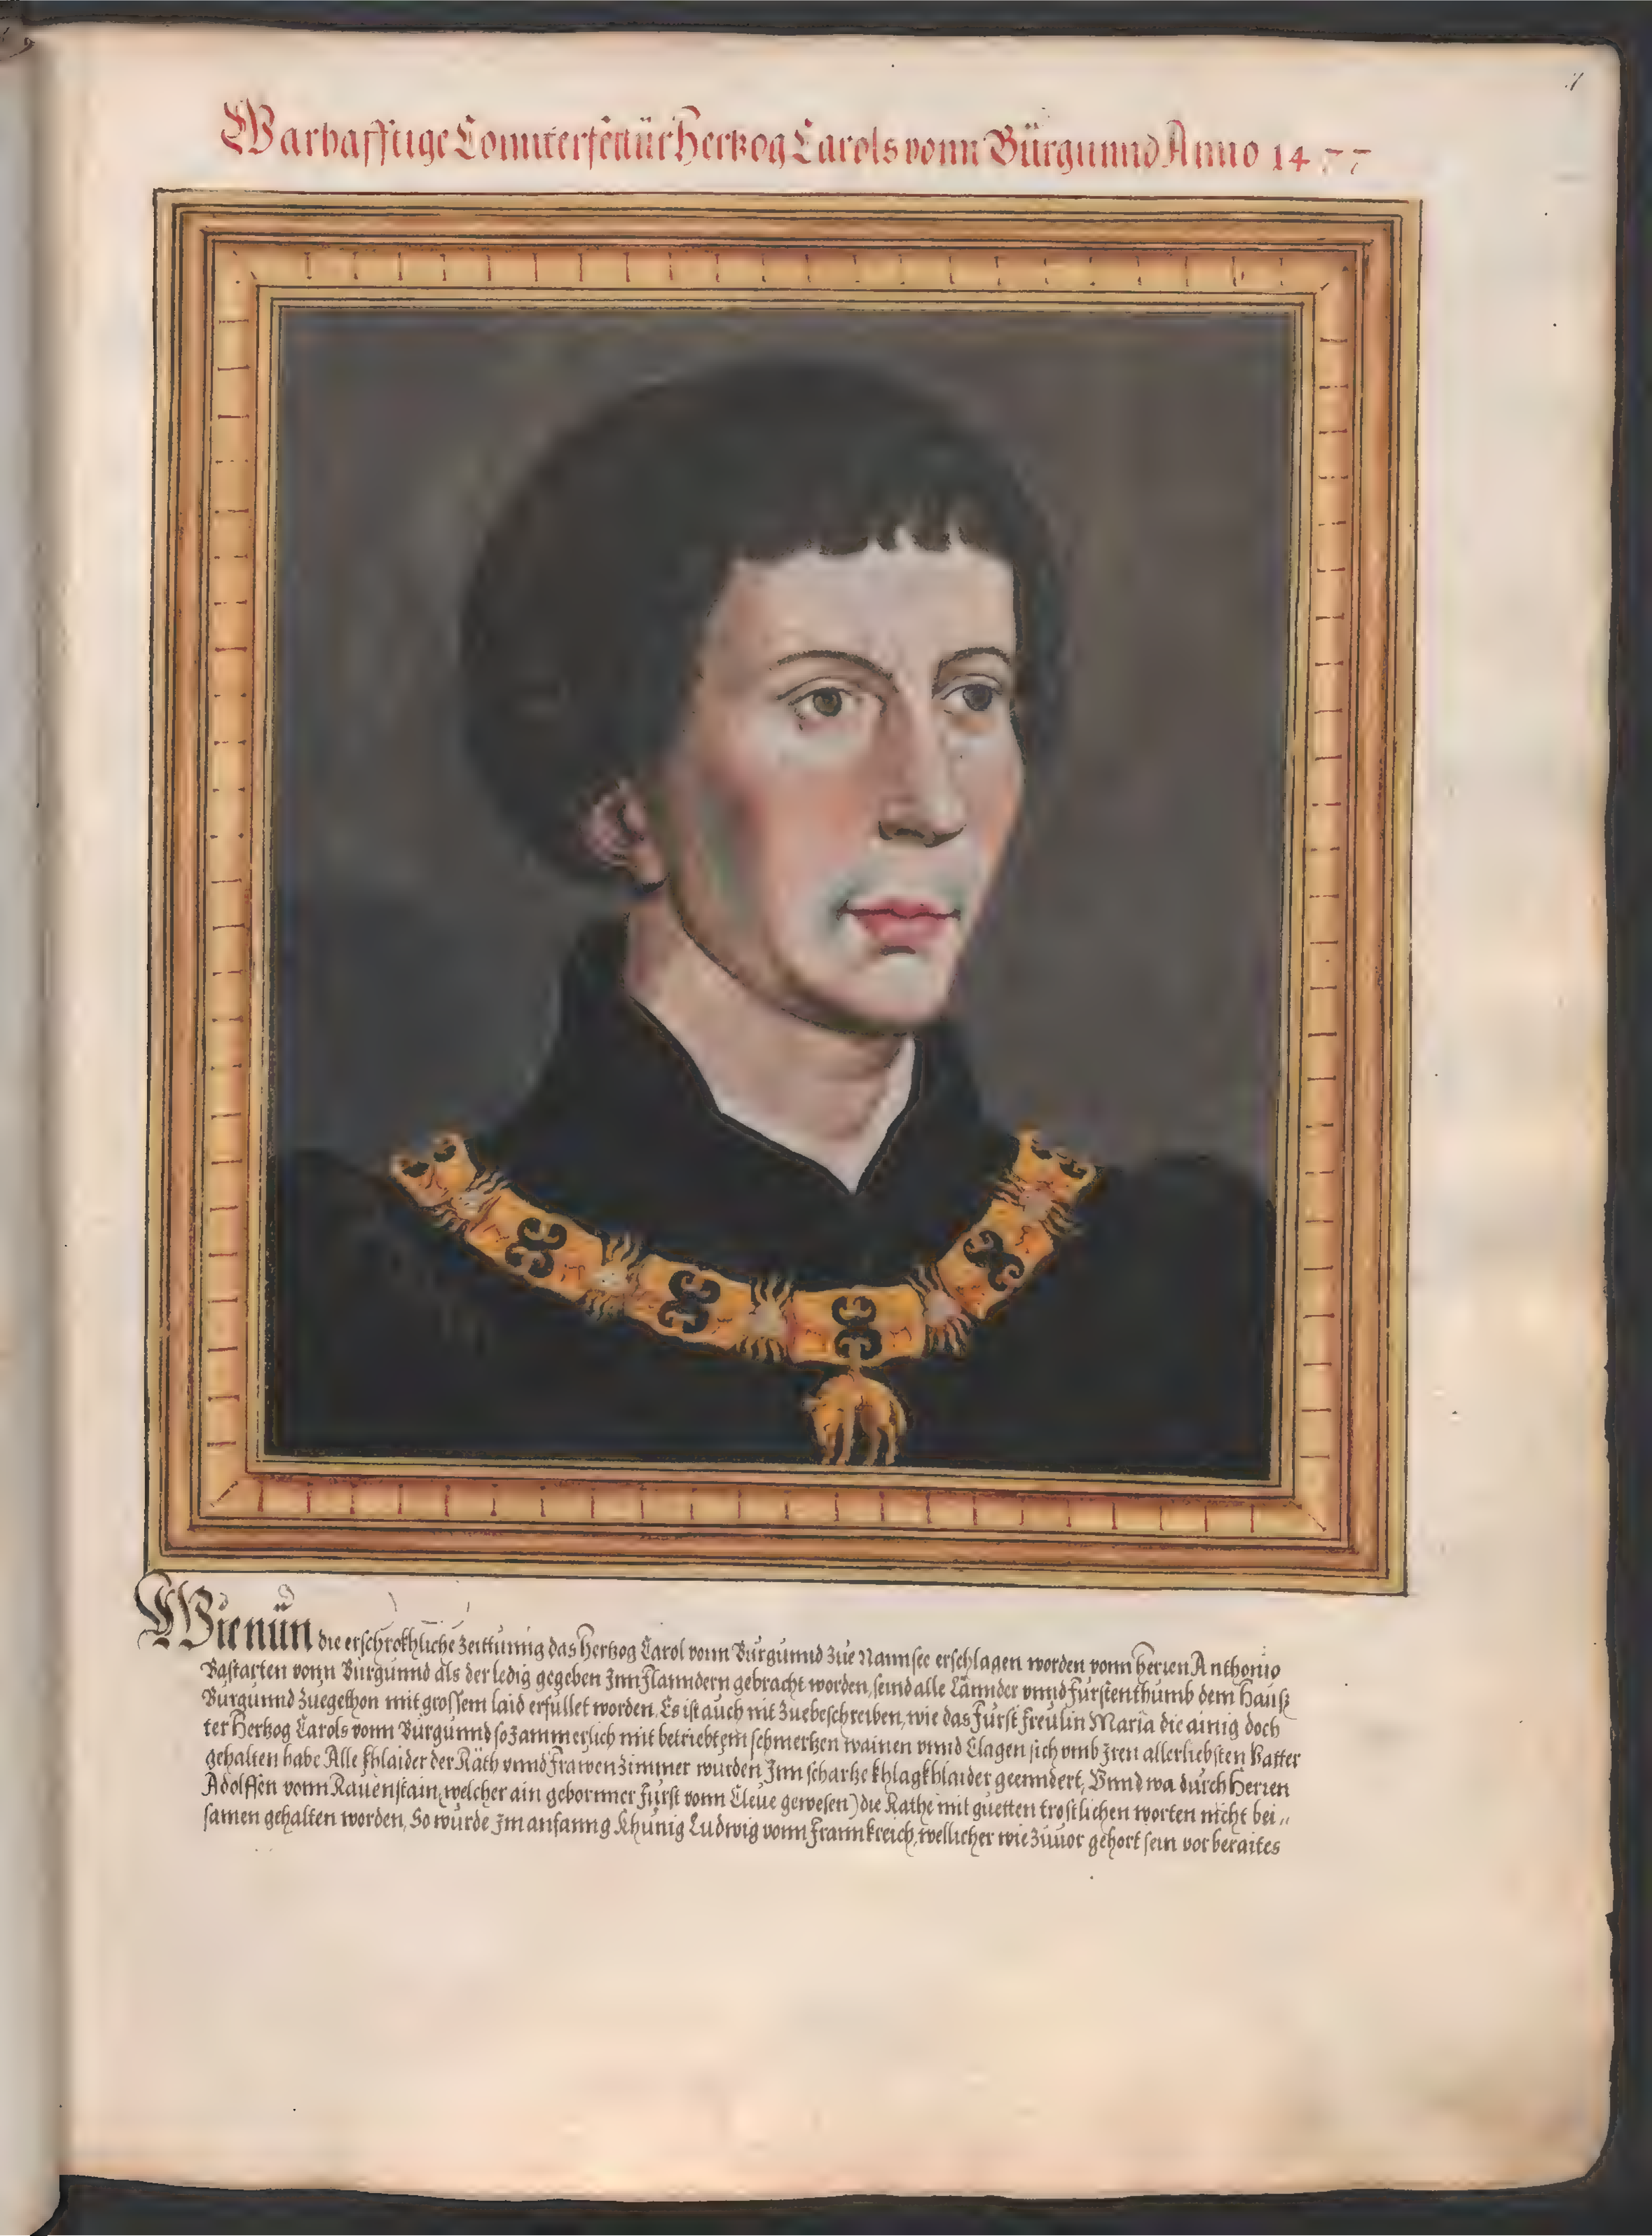 Warhafftige Connterfettür Hertzog Carols vonn Bürgunnd Anno 1477
Wie nün die erschrokhliche Zeittunng das Hertzog Carol vonn Burgunnd Zue Nannsee erschlagen worden vonn Herren Anthonio
Bastarten vonn Burgunnd als der ledig gegeben Inn Flanndern gebracht worden, seind alle Lännder vnnd Furstenthumb dem Hauß
Burgunnd Zuegethon mit grossem laid erfullet worden. Es ist auch nit Zuebeschreiben, wie das Fürst freulin Maria die ainig doch
ter Hertzog Carols vonn Burgunnd so Jammerlich mit betriebtem schmertzen wainen vnnd Clagen sich vmb Jren allerliebsten Vatter
gehalten habe Alle khlaider der Räth vnnd Frawen Zimmer wurden Inn schwartze khlagkhlaider geenndert, Vnnd wa durch Herren
Adolffen vonn Rauenstain, welcher ain gebornner Furst vonn Cleue gewesen) die Rathe mit guetten trostlichen worten nicht bei„
samen gehalten worden, So wurde Im anfanng Khunig Ludwig vonn Frannkreich, wellicher wie Zuuor gehort sein vorberaites